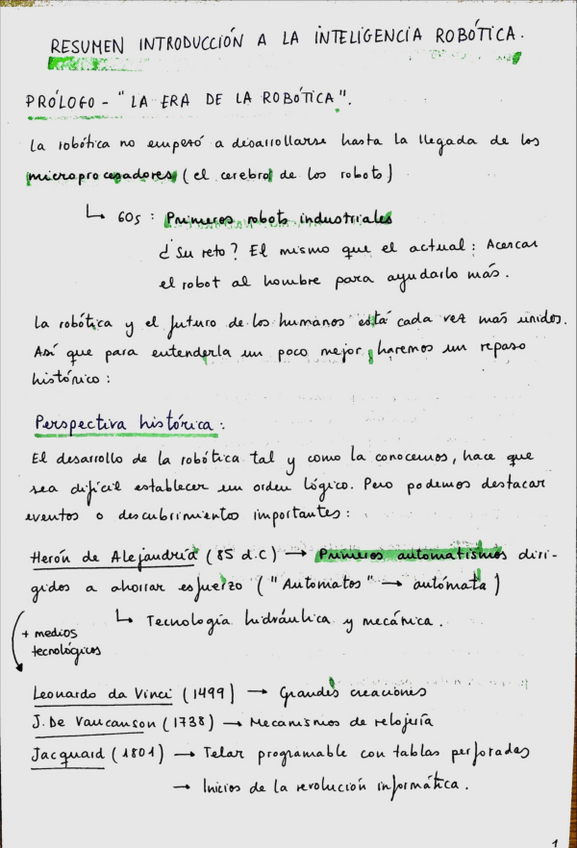 RESUMEN INTRODUCCIÓN A LA INTELIGENCIA ROBÓTICA.
PRÓLOGO - "LA ERA DE LA ROBÓTICA".
La robótica no empezó a desarrollarse hasta la llegada de los
microprocesadores (el cerebro de los robots)
↳ 60s : Primeros robots industriales
¿Su reto? El mismo que el actual: Acercar
el robot al hombre para ayudarlo más.
La robótica y el futuro de los humanos está cada vez más unidos.
Así que para entenderla un poco mejor, haremos un repaso
histórico:
Perspectiva histórica:
El desarollo de la robótica tal y como la conocemos, hace que
sea difícil establecer un orden lógico. Pero podemos destacar
eventos o descubrimientos importantes:
Herón de Alejandría (85 d.C) → Primeros automatismos diri-
gidos a ahorrar esfuerzo ("Automatos" → autómata)
↳ Tecnología hidráulica y mecánica.
+ medios
tecnológicos
Leonardo da Vinci (1499) → Grandes creaciones
J. De Vaucanson (1738) → Mecanismos de relojería
Jacquard (1801) → Telar programable con tablas perforadas
→ Inicios de la revolución informática.
1